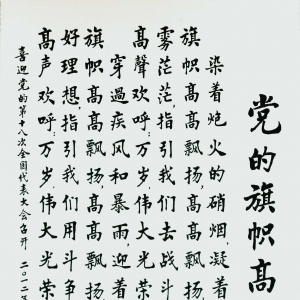 党的旗帜高
染着炮火的硝烟,凝着
旗帜高高飘扬,高高飘扬
雾茫茫,指引我们去战斗
高聲欢呼,万岁,伟大光荣
穿過疾风和暴雨,迎着
旗帜高高飘扬,高高飘扬
好理想,指引我们用斗争
高声欢呼,万岁,伟大光荣
喜迎党的第十八次全国代表大会召开 二〇一二